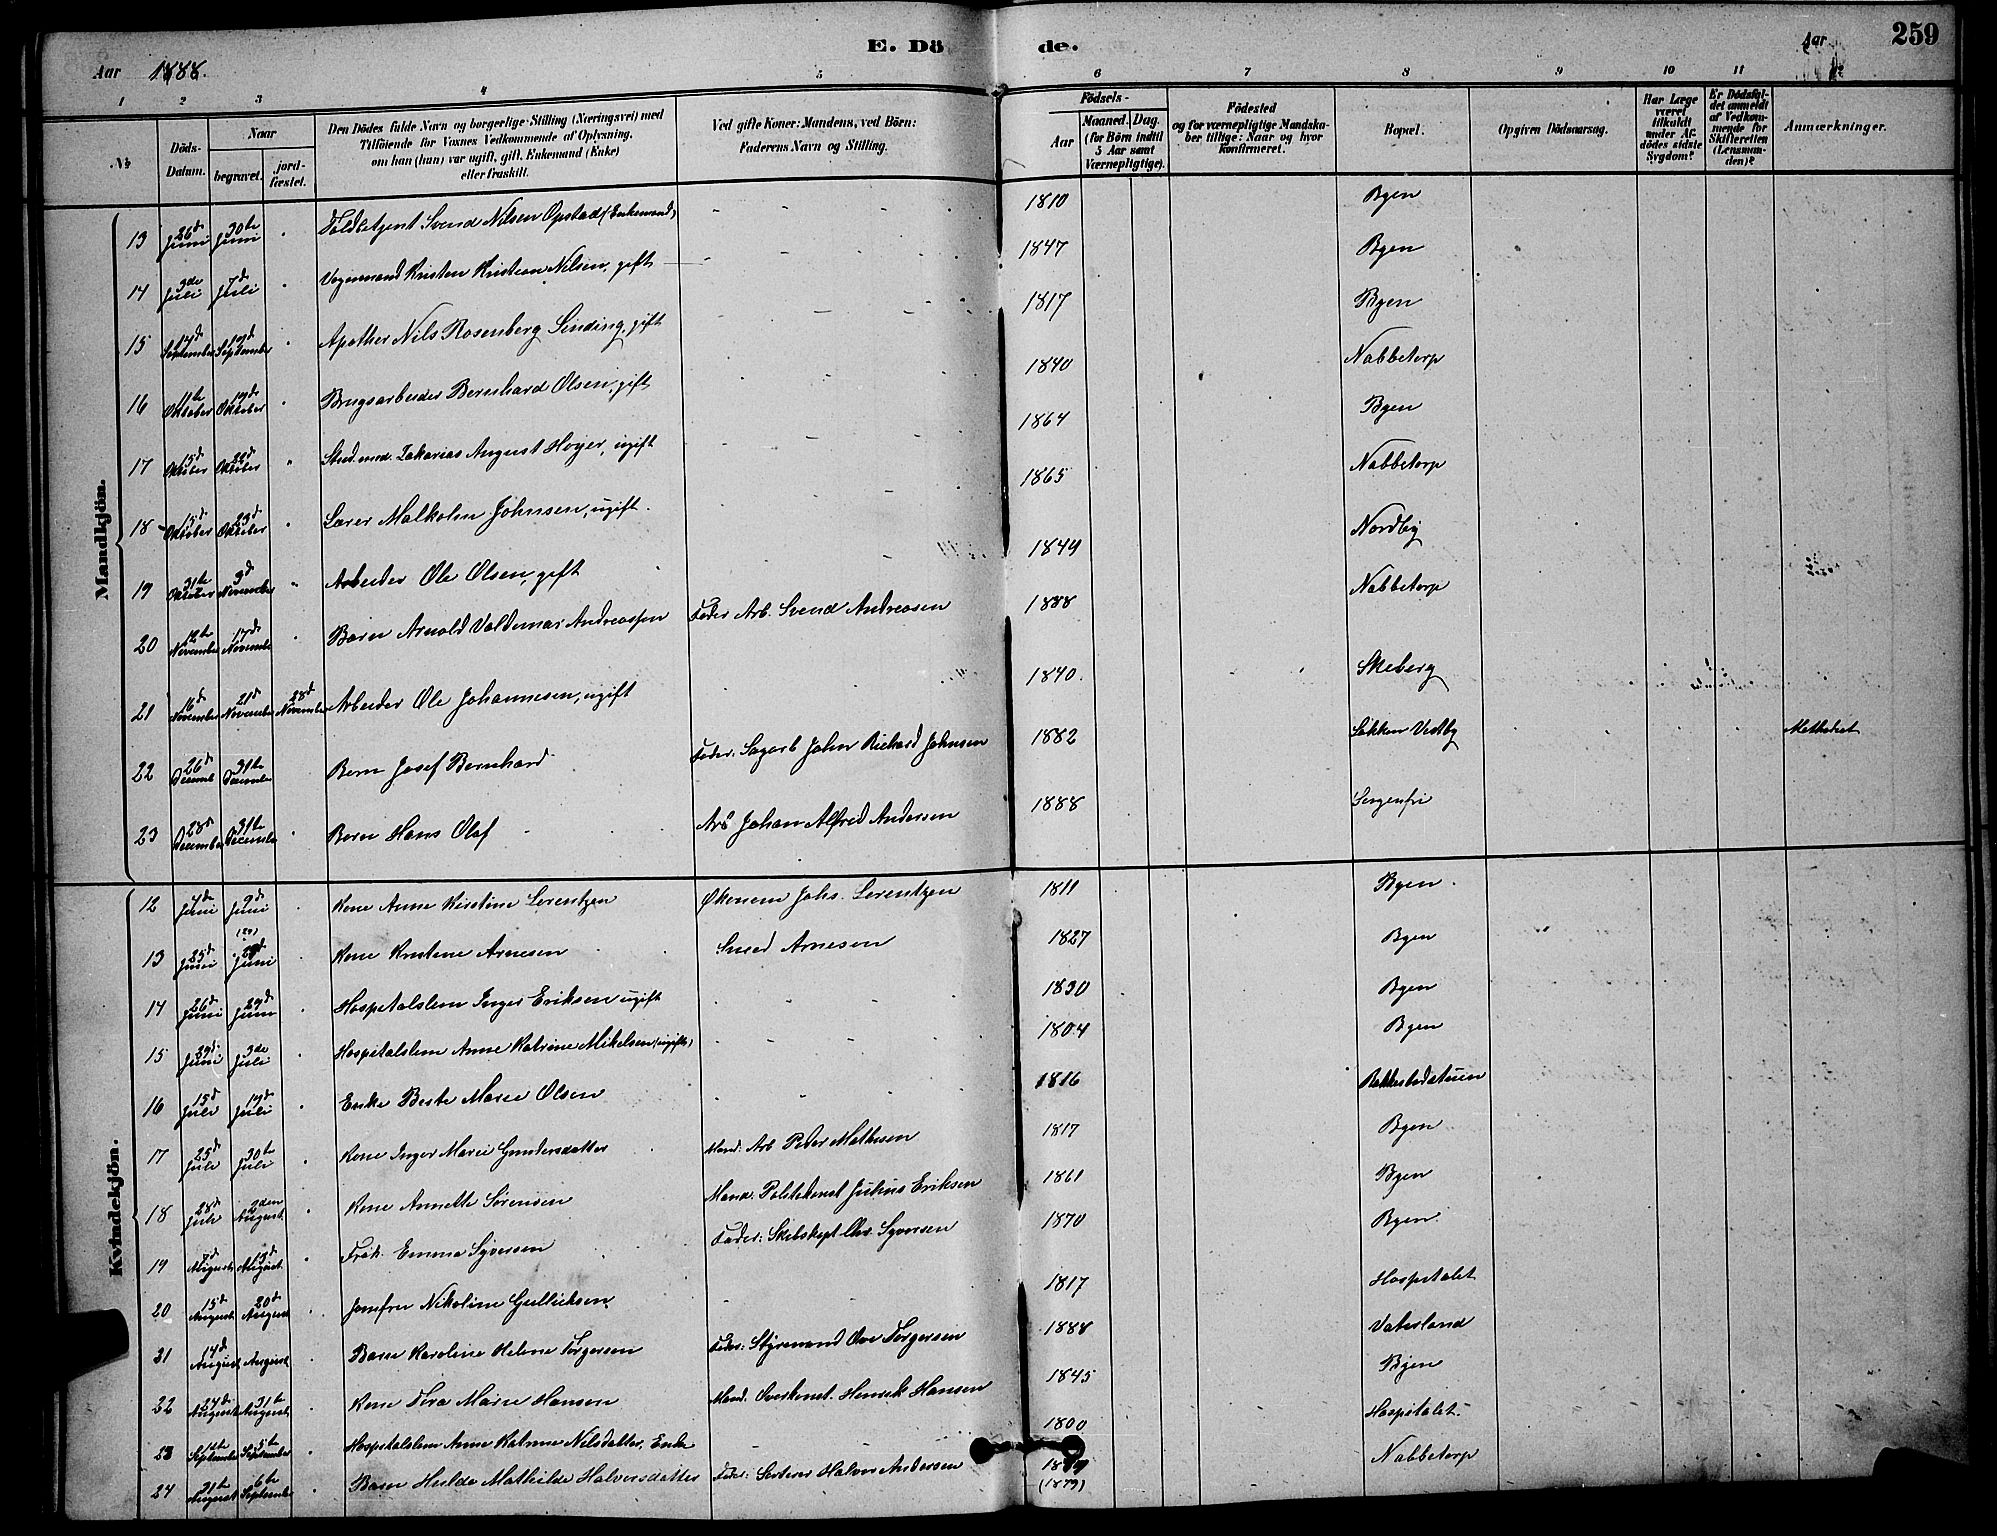 E. Dö de.
259
Aar 1888.
Aar
1 2 3 4 5 6 7 8 9 10 11 12
№
Döds-Datum.
Naar
begravet.
jord-fæstet.
Den Dödes fulde Navn og borgerlige Stilling (Næringsvei) med
Tilföiende for Voxnes Vedkommende af Oplysning,
om han (hun) var ugift, gift, Enkemand (Enke)
eller fraskilt.
Ved gifte Koner: Mandens, ved Börn:
Faderens Navn og Stilling.
Födsels-
Aar
Maaned. Dag.
(for Börn indtil
5 Aar samt
Værnepligtige).
Födested
og for værnepligtige Mandska-
ber tillige: Naar og hvor
Konfirmeret.
Bopæl.
Opgiven Dödsaarsag.
Har Læge
været
tilkaldt
under Af-
dödes sidste
Sygdom?
Er Dödsfal-
det anmeldt
af Vedkom-
mende for
Skifteretten
(Lensman-
den)?
Anmærkninger.
Mandkjön.
13 26d Juni 30te Juni Toldbetjent Svend Nilsen Opstad (Enkemand) 1810 Byen
14 3de Juli 7d Juli Vognmand Kristen Kristian Nilsen, gift 1847 Byen
15 September September Apother Nils Rosenberg Sinding, gift 1817 Byen
16 11te Oktober Oktober Brugsarbeider Bernhard Olsen, gift 1840 Nabbetorp
17 15d Oktober 22d Oktober Stud. med. Zakarias August Hoyer, ugift 1864 Byen
18 15d Oktober 23d Oktober Lærer Malkolm Johnsen, ugift. 1865 Nabbetorp
19 31te Oktober 3d November Arbeider Ole Olsen, gift 1849 Nordby
20 12te November 17d November Barn Arnold Valdemar Andreassen Fader Arb. Svend Andreasen 1888 Nabbetorp
21 16d November 21d November 28d November Arbeider Ole Johannesen, ugift 1840. Skeberg
22 26d Decemb 31te December Barn Josef Bernhard Fader: Sagarb John Richard Johnsen 1882 Løkken Vestby Methodist
23 28d December 31te December Barn Hans Olaf Arb Johan Alfred Andersen 1888 Sorgenfri
Kvindekjön.
12 4de Juni 9d Juni Kone Anne Kirstine Lorentzen Økonom Johs. Lorentzen 1811 Byen.
13 25d Juni (29) Juni Kone Kristine Arnesen Smed Arnesen 1827 Byen
14 26d Juni 29d Juni Hospitalslem Inger Eriksen ugift 1830 Byen
15 29d Juni 3de Juli Hospitalslem Anne Katrine Mikelsen (ugift) 1804 Byen
16 15d Juli 19d Juli Enke Berte Marie Olsen 1816 Bakkestadstuen
17 25d Juli 30te Juli Kone Inger Marie Gundersdatter Mand: Arb Peder Mathisen 1817 Byen
18 28d Juli 2den August Kone Annette Sørensen Mand: Politikonst Julius Eriksen 1861 Byen
19 August 13d August Frøk. Emma Syversen Fader: Skibskapt Chr. Syversen 1870 Byen
20 15d August 20d August Jomfru Nikoline Gulliksen 1817 Hospitalet
21 14d August August Barn Karoline Helene Torgersen Fader: Styrmand Ove Torgersen 1888 Vaterland
22 24de August 31te August Kone Tora Marie Hansen Mand. Overkonst. Henrik Hansen 1845 Byen
23 September 5te September Hospitalslem Anne Katrine Nilsdatter, Enke 1800 Hospitalet
24 31te August 6te September Barn Hulda Mathilde Halvorsdatter Fader: Sorterer Halvor Andersen (1879) Nabbetorp